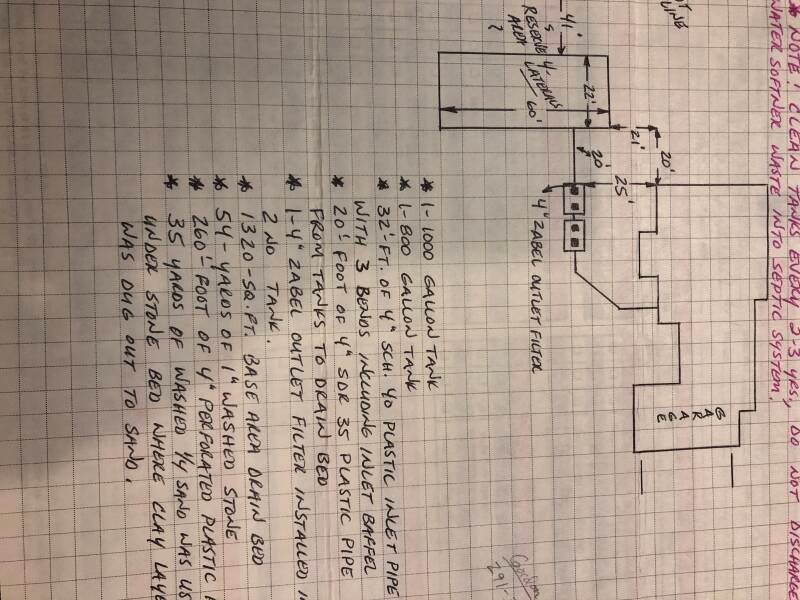 * NOTE! CLEAN TANKS EVERY 2-3 YRS., DO NOT DISCHARGE
WATER SOFTNER WASTE INTO SEPTIC SYSTEM.
41'
RESERVE
AREA
?
4-
LATERALS
60'
22'
21'
20'
20'
25'
4" ZABEL OUTLET FILTER
GARAGE
* 1-1000 GALLON TANK
* 1-800 GALLON TANK
* 32'-FT. OF 4" SCH. 40 PLASTIC INLET PIPE
WITH 3 BENDS INCLUDING INLET BAFFEL
* 20'-FOOT OF 4" SDR 35 PLASTIC PIPE
FROM TANKS TO DRAIN BED
* 1-4" ZABEL OUTLET FILTER INSTALLED
2ND TANK.
* 1320-SQ.FT. BASE AREA DRAIN BED
* 54-YARDS OF 1" WASHED STONE
* 260'-FOOT OF 4" PERFORATED PLASTIC
* 35 YARDS OF WASHED 1/4 SAND WAS
UNDER STONE BED WHERE CLAY
WAS DUG OUT TO SAND.